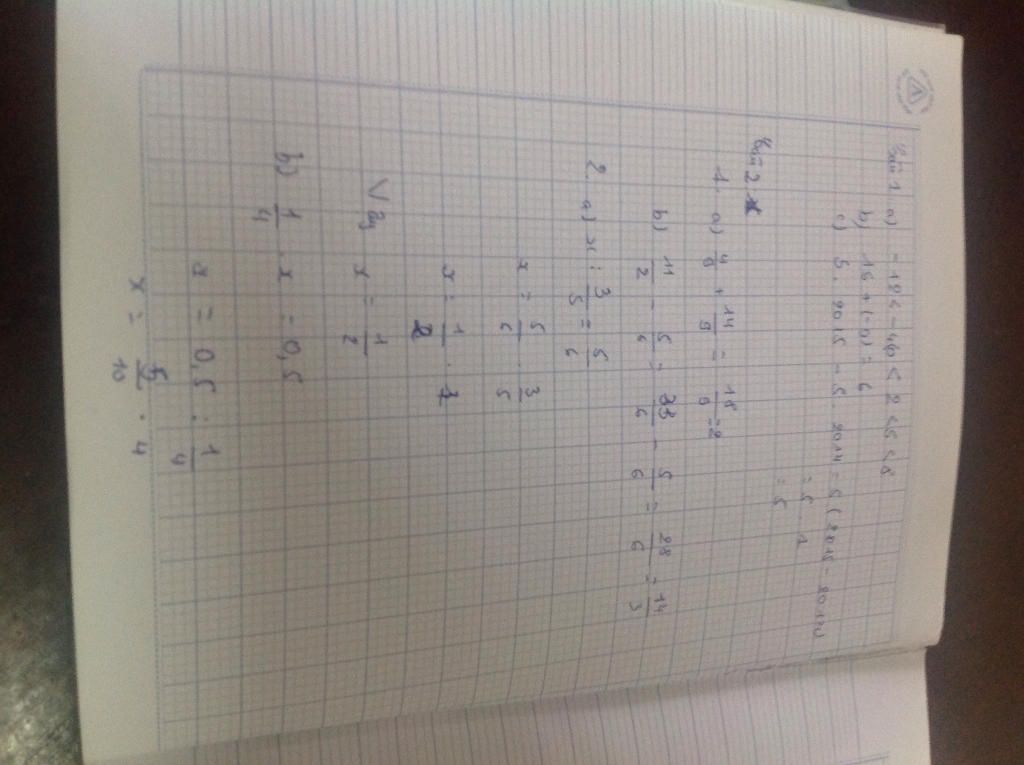 Bài 1 a) -18 < -4 < 2 < 5 < 8
b) 15 + (-9) = 6
c) 5 . 2015 - 5 . 2014 = 5 ( 2015 - 2014)
= 5 . 1
= 5
Bài 2
1. a) 4/9 + 14/9 = 18/9 = 2
b) 11/2 - 5/6 = 33/6 - 5/6 = 28/6 = 14/3
2. a) x : 3/5 = 5/6
x = 5/6 . 3/5
x = 1/2 . 1
Vậy x = 1/2
b) 1/4 . x = 0,5
x = 0,5 : 1/4
x = 5/10 . 4